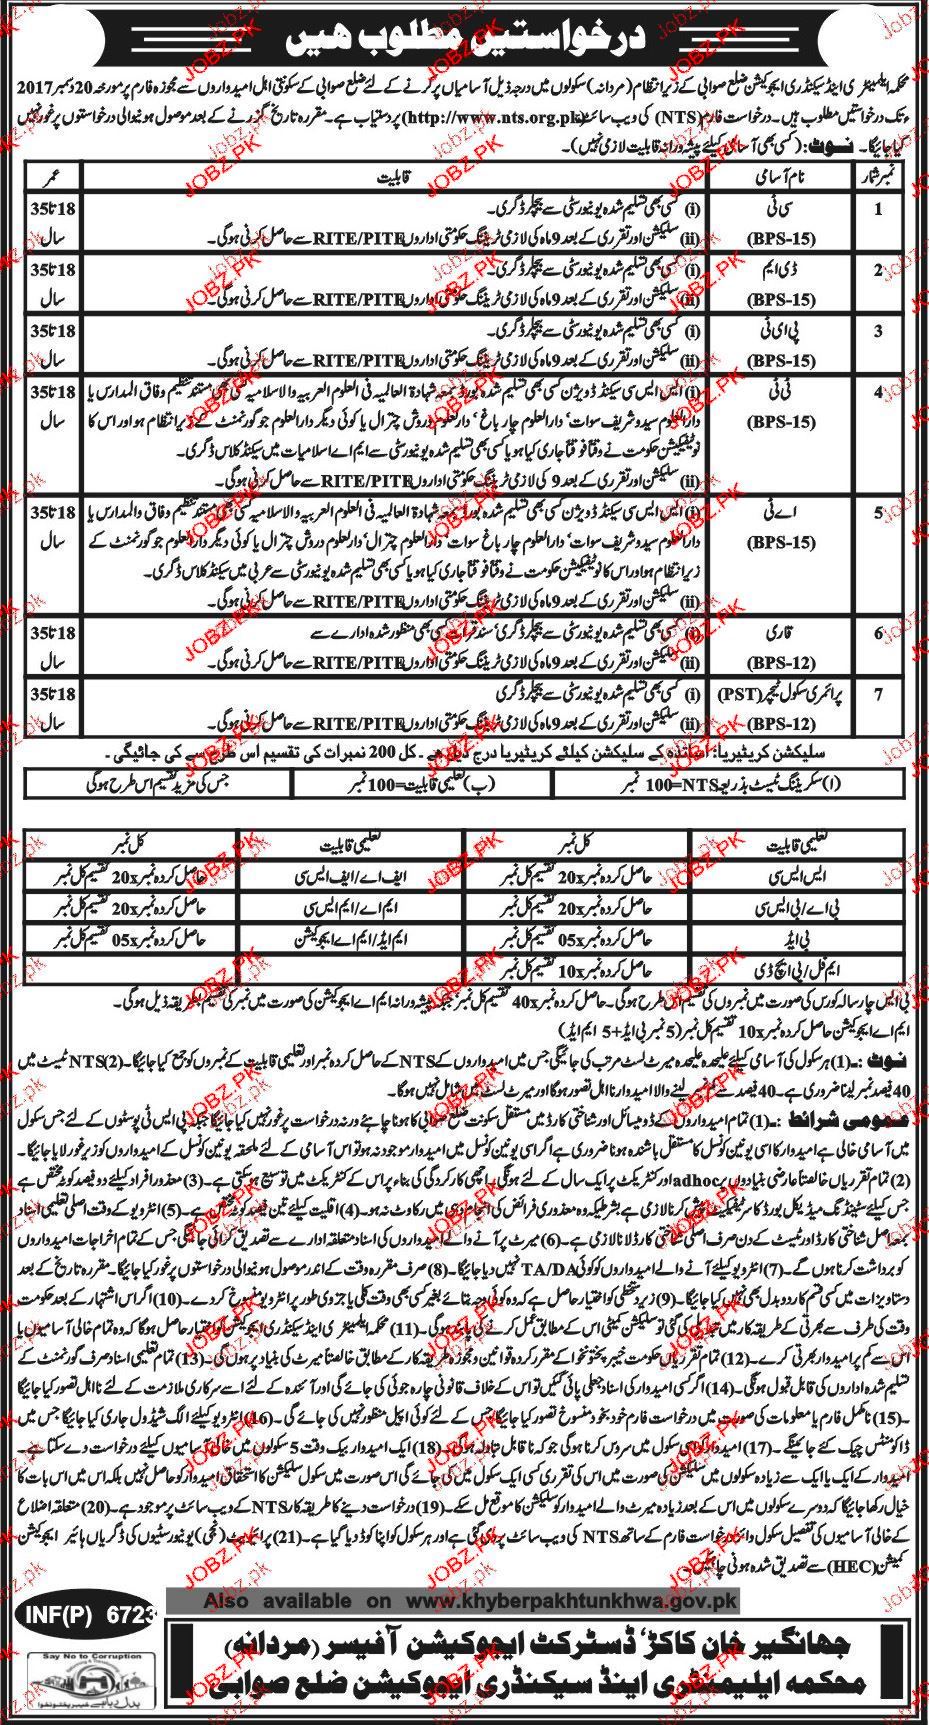 درخواستیں مطلوب ہیں
محکمہ ایلیمنٹری اینڈ سیکنڈری ایجوکیشن ضلع صوابی کے زیر انتظام (مردانہ) سکولوں میں درجہ ذیل آسامیاں پر کرنے کے لئے ضلع صوابی کے سکونتی اہل امیدواروں سے مجوزہ فارم پر مورخہ 20 دسمبر 2017
ء تک درخواستیں مطلوب ہیں۔ درخواست فارم (NTS) کی ویب سائٹ (http://www.nts.org.pk) پر دستیاب ہے۔ مقررہ تاریخ گزرنے کے بعد موصول ہونیوالی درخواستوں پر غور نہیں
کیا جائیگا۔ نوٹ: (کسی بھی آسامی کیلئے پیشہ ورانہ قابلیت لازمی نہیں)۔
نمبر شمار نام آسامی قابلیت عمر
1 سی ٹی (i) کسی بھی تسلیم شدہ یونیورسٹی سے بیچلر ڈگری۔ 18 تا 35
(BPS-15) (ii) سلیکشن اور تقرری کے بعد 9 ماہ کی لازمی ٹریننگ حکومتی اداروں RITE/PITE سے حاصل کرنی ہوگی۔ سال
2 ڈی ایم (i) کسی بھی تسلیم شدہ یونیورسٹی سے بیچلر ڈگری۔ 18 تا 35
(BPS-15) (ii) سلیکشن اور تقرری کے بعد 9 ماہ کی لازمی ٹریننگ حکومتی اداروں RITE/PITE سے حاصل کرنی ہوگی۔ سال
3 پی ای ٹی (i) کسی بھی تسلیم شدہ یونیورسٹی سے بیچلر ڈگری۔ 18 تا 35
(BPS-15) (ii) سلیکشن اور تقرری کے بعد 9 ماہ کی لازمی ٹریننگ حکومتی اداروں RITE/PITE سے حاصل کرنی ہوگی۔ سال
4 ٹی ٹی (i) ایس ایس سی سیکنڈ ڈویژن کسی بھی تسلیم شدہ بورڈ بمعہ شہادۃ العالمیہ فی العلوم العربیہ والاسلامیہ کسی بھی مستند تنظیم وفاق المدارس یا 18 تا 35
(BPS-15) دارالعلوم سیدو شریف سوات، دارالعلوم چار باغ، دارالعلوم دروش چترال یا کوئی دیگر دارالعلوم جو گورنمنٹ کے زیر انتظام ہو اور اس کا سال
نوٹیفکیشن حکومت نے وقتاً فوقتاً جاری کیا ہو یا کسی بھی تسلیم شدہ یونیورسٹی سے ایم اے اسلامیات میں سیکنڈ کلاس ڈگری۔
(ii) سلیکشن اور تقرری کے بعد 9 کی لازمی ٹریننگ حکومتی اداروں RITE/PITE سے حاصل کرنی ہوگی۔
5 اے ٹی (i) ایس ایس سی سیکنڈ ڈویژن کسی بھی تسلیم شدہ بورڈ بمعہ شہادۃ العالمیہ فی العلوم العربیہ والاسلامیہ کسی بھی مستند تنظیم وفاق والمدارس یا 18 تا 35
(BPS-15) دارالعلوم سیدو شریف سوات، دارالعلوم چار باغ سوات، دارالعلوم چترال، دارالعلوم دروش چترال یا کوئی دیگر دارالعلوم جو گورنمنٹ کے سال
زیر انتظام ہو اور اس کا نوٹیفکیشن حکومت نے وقتاً فوقتاً جاری کیا ہو یا کسی بھی تسلیم شدہ یونیورسٹی سے عربی میں سیکنڈ کلاس ڈگری۔
(ii) سلیکشن اور تقرری کے بعد 9 ماہ کی لازمی ٹریننگ حکومتی اداروں RITE/PITE سے حاصل کرنی ہوگی۔
6 قاری (i) کسی بھی تسلیم شدہ یونیورسٹی سے بیچلر ڈگری، سند قرأت کسی بھی منظور شدہ ادارے سے 18 تا 35
(BPS-12) (ii) سلیکشن اور تقرری کے بعد 9 ماہ کی لازمی ٹریننگ حکومتی اداروں RITE/PITE سے حاصل کرنی ہوگی۔ سال
7 پرائمری سکول ٹیچر (PST) (i) کسی بھی تسلیم شدہ یونیورسٹی سے بیچلر ڈگری 18 تا 35
(BPS-12) (ii) سلیکشن اور تقرری کے بعد 9 ماہ کی لازمی ٹریننگ حکومتی اداروں RITE/PITE سے حاصل کرنی ہوگی۔ سال
سلیکشن کریٹیریا: اساتذہ کے سلیکشن کیلئے کریٹیریا درج ذیل ہے۔ کل 200 نمبرات کی تقسیم اس طرح سے کی جائیگی۔
(ا) سکریننگ ٹیسٹ بذریعہ NTS=100 نمبر (ب) تعلیمی قابلیت=100 نمبر جس کی مزید تقسیم اس طرح ہوگی
تعلیمی قابلیت کل نمبر تعلیمی قابلیت کل نمبر
ایس ایس سی حاصل کردہ نمبر 20x تقسیم کل نمبر ایف اے/ایف ایس سی حاصل کردہ نمبر 20x تقسیم کل نمبر
بی اے/بی ایس سی حاصل کردہ نمبر 20x تقسیم کل نمبر ایم اے/ایم ایس سی حاصل کردہ نمبر 20x تقسیم کل نمبر
بی ایڈ حاصل کردہ نمبر 05x تقسیم کل نمبر ایم ایڈ/ایم اے ایجوکیشن حاصل کردہ نمبر 05x تقسیم کل نمبر
ایم فل/پی ایچ ڈی حاصل کردہ نمبر 10x تقسیم کل نمبر
بی ایس چار سالہ کورس کی صورت میں نمبروں کی تقسیم اس طرح ہوگی۔ حاصل کردہ نمبر 40x تقسیم کل نمبر، جبکہ پیشہ ورانہ ایم اے ایجوکیشن کی صورت میں نمبر کی تقسیم بطریقہ ذیل ہوگی۔
ایم اے ایجوکیشن حاصل کردہ نمبر 10x تقسیم کل نمبر (5 نمبر بی ایڈ + 5 ایم ایڈ)
نوٹ:۔ (1) ہر سکول کی آسامی کیلئے علیحدہ علیحدہ میرٹ لسٹ مرتب کی جائیگی جس میں امیدواروں کے NTS کے حاصل کردہ نمبر اور تعلیمی قابلیت کے نمبروں کو جمع کیا جائیگا۔ (2) NTS ٹیسٹ میں
40 فیصد نمبر لینا ضروری ہے۔ 40 فیصد سے کم نمبر لینے والا امیدوار نااہل تصور ہوگا اور میرٹ لسٹ میں شامل نہیں ہوگا۔
عمومی شرائط:۔ (1) تمام امیدواروں کے ڈومیسائل اور شناختی کارڈ میں مستقل سکونت ضلع صوابی کا ہونا چاہئے ورنہ درخواست پر غور نہیں کیا جائیگا جبکہ پی ایس ٹی پوسٹوں کے لئے جس سکول
میں آسامی خالی ہے امیدوار کا اسی یونین کونسل کا مستقل باشندہ ہونا ضروری ہے اگر اسی یونین کونسل میں امیدوار موجود نہ ہو تو اس آسامی کے لئے ملحقہ یونین کونسل کے امیدواروں کو زیر غور لایا جائیگا۔
(2) تمام تقرریاں خالصتاً عارضی بنیادوں پر adhoc اور کنٹریکٹ پر ایک سال کے لئے ہونگی۔ اچھی کارکردگی کی بناء پر اس کے کنٹریکٹ میں توسیع ہو سکتی ہے۔ (3) معذور افراد کیلئے دو فیصد کوٹہ مختص ہے
جس کیلئے سٹینڈنگ میڈیکل بورڈ کا سرٹیفکیٹ پیش کرنا لازمی ہے بشرطیکہ وہ معذوری فرائض کی انجام دہی میں رکاوٹ نہ ہو۔ (4) اقلیت کیلئے تین فیصد کوٹہ مختص ہے۔ (5) انٹرویو کے وقت اصلی تعلیمی اسناد
بمعہ اصل شناختی کارڈ اور ٹیسٹ کے دن صرف اصلی شناختی کارڈ لانا لازمی ہے۔ (6) میرٹ پر آنے والے امیدواروں کی اسناد متعلقہ ادارے سے تصدیق کرائی جائیگی جس کے تمام اخراجات امیدواروں
کو برداشت کرنا ہوں گے۔ (7) انٹرویو کیلئے آنے والے امیدواروں کو کوئی TA/DA نہیں دیا جائیگا۔ (8) صرف مقررہ وقت کے اندر موصول ہونیوالی درخواستوں پر غور کیا جائیگا۔ مقررہ تاریخ کے بعد
دستاویزات میں کسی قسم کا ردو بدل بھی نہیں کیا جائیگا۔ (9) زیر دستخطی کو اختیار حاصل ہے کہ وہ کوئی وجہ بتائے بغیر کسی بھی وقت کلی یا جزوی طور پر انٹرویو منسوخ کر دے۔ (10) اگر اس اشتہار کے بعد حکومت
وقت کی طرف سے بھرتی کے طریقہ کار میں تبدیلی کی گئی تو سلیکشن کمیٹی اس کے مطابق عمل کرنے کی پابند ہوگی۔ (11) محکمہ ایلیمنٹری اینڈ سیکنڈری ایجوکیشن کو اختیار حاصل ہوگا کہ وہ تمام خالی آسامیوں یا
اس سے کم پر امیدوار بھرتی کرے۔ (12) تمام تقرریاں حکومت خیبر پختونخوا کے مقرر کردہ قوانین و مجوزہ طریقہ کار کے مطابق خالصتاً میرٹ کی بنیاد پر ہوں گی۔ (13) تمام تعلیمی اسناد صرف گورنمنٹ کے
تسلیم شدہ اداروں کی قابل قبول ہونگی۔ (14) اگر کسی امیدوار کی اسناد جعلی پائی گئیں تو اس کے خلاف قانونی چارہ جوئی کی جائے گی اور آئندہ کے لئے اسے سرکاری ملازمت کے لئے نااہل تصور کیا جائیگا
۔ (15) نامکمل فارم یا معلومات کی صورت میں درخواست فارم خود بخود منسوخ تصور کیا جائیگا جس کے لئے کوئی اپیل منظور نہیں کی جائے گی۔ (16) انٹرویو کیلئے الگ شیڈول جاری کیا جائیگا جس میں
ڈاکومنٹس چیک کئے جائینگے۔ (17) امیدوار کو اسی سکول میں سروس کرنا ہوگی جو کہ ناقابل تبادلہ ہوگی۔ (18) ایک امیدوار بیک وقت 5 سکولوں میں خالی آسامیوں کیلئے درخواست دے سکتا ہے۔
امیدوار کے ایک یا ایک سے زیادہ سکولوں میں سلیکشن کی صورت میں اس کی تقرری کسی ایک سکول میں کی جائے گی اس صورت میں سکول سلیکشن کا استحقاق امیدوار کو حاصل نہیں بلکہ اس میں اس بات کا
خیال رکھا جائیگا کہ دوسرے سکولوں میں اس کے بعد زیادہ میرٹ والے امیدوار کو سلیکشن کا موقع مل سکے۔ (19) درخواست دینے کا طریقہ کار NTS کے ویب سائٹ پر موجود ہے۔ (20) متعلقہ اضلاع
کے خالی آسامیوں کی تفصیل سکول وائز درخواست فارم کے ساتھ NTS کی ویب سائٹ پر دی گئی ہے اور ہر سکول کو اپنا کوڈ دیا گیا ہے۔ (21) پرائیویٹ (نجی) یونیورسٹیوں کی ڈگریاں ہائیر ایجوکیشن
کمیشن (HEC) سے تصدیق شدہ ہونی چاہئیں۔
Also available on www.khyberpakhtunkhwa.gov.pk
INF(P) 6723
Say No to Corruption
جہانگیر خان کاکڑ، ڈسٹرکٹ ایجوکیشن آفیسر (مردانہ)
محکمہ ایلیمنٹری اینڈ سیکنڈری ایجوکیشن ضلع صوابی
JOBZ.PK
Jobz.pk